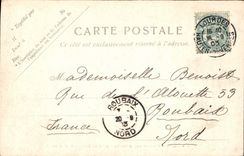 CARTE POSTALE
Ce côté est exclusivement réservé à l'adresse.
Expédié par
LOURDES
Mademoiselle Benoist
Rue de l'Alouette 33
Roubaix
France
Nord
ROUBAIX
NORD